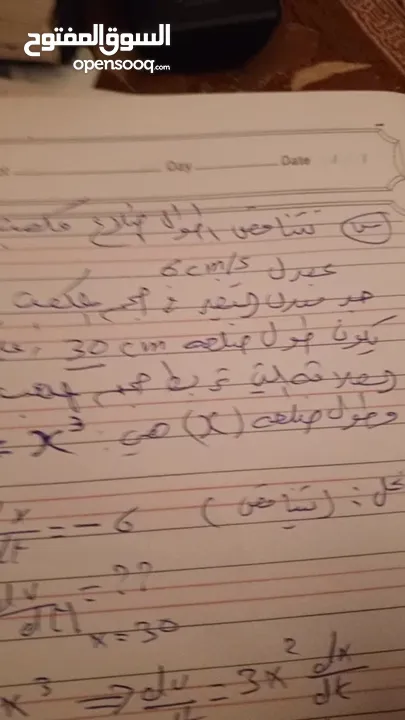 السوق المفتوح
opensooq.com
Day Date / /
س تتناقص طول ضلع مكعب
بمعدل 6 cm/s
جد معدل التغير في حجم مكعب
يكون طول ضلعه 30 cm
تربط حجم
وطول ضلعه (x) هي = x³
الحل: (تناقص) dx/dt = - 6
dv/dt| = ??
x = 30
x³ ⇒ dv/dt = 3x² dx/dt